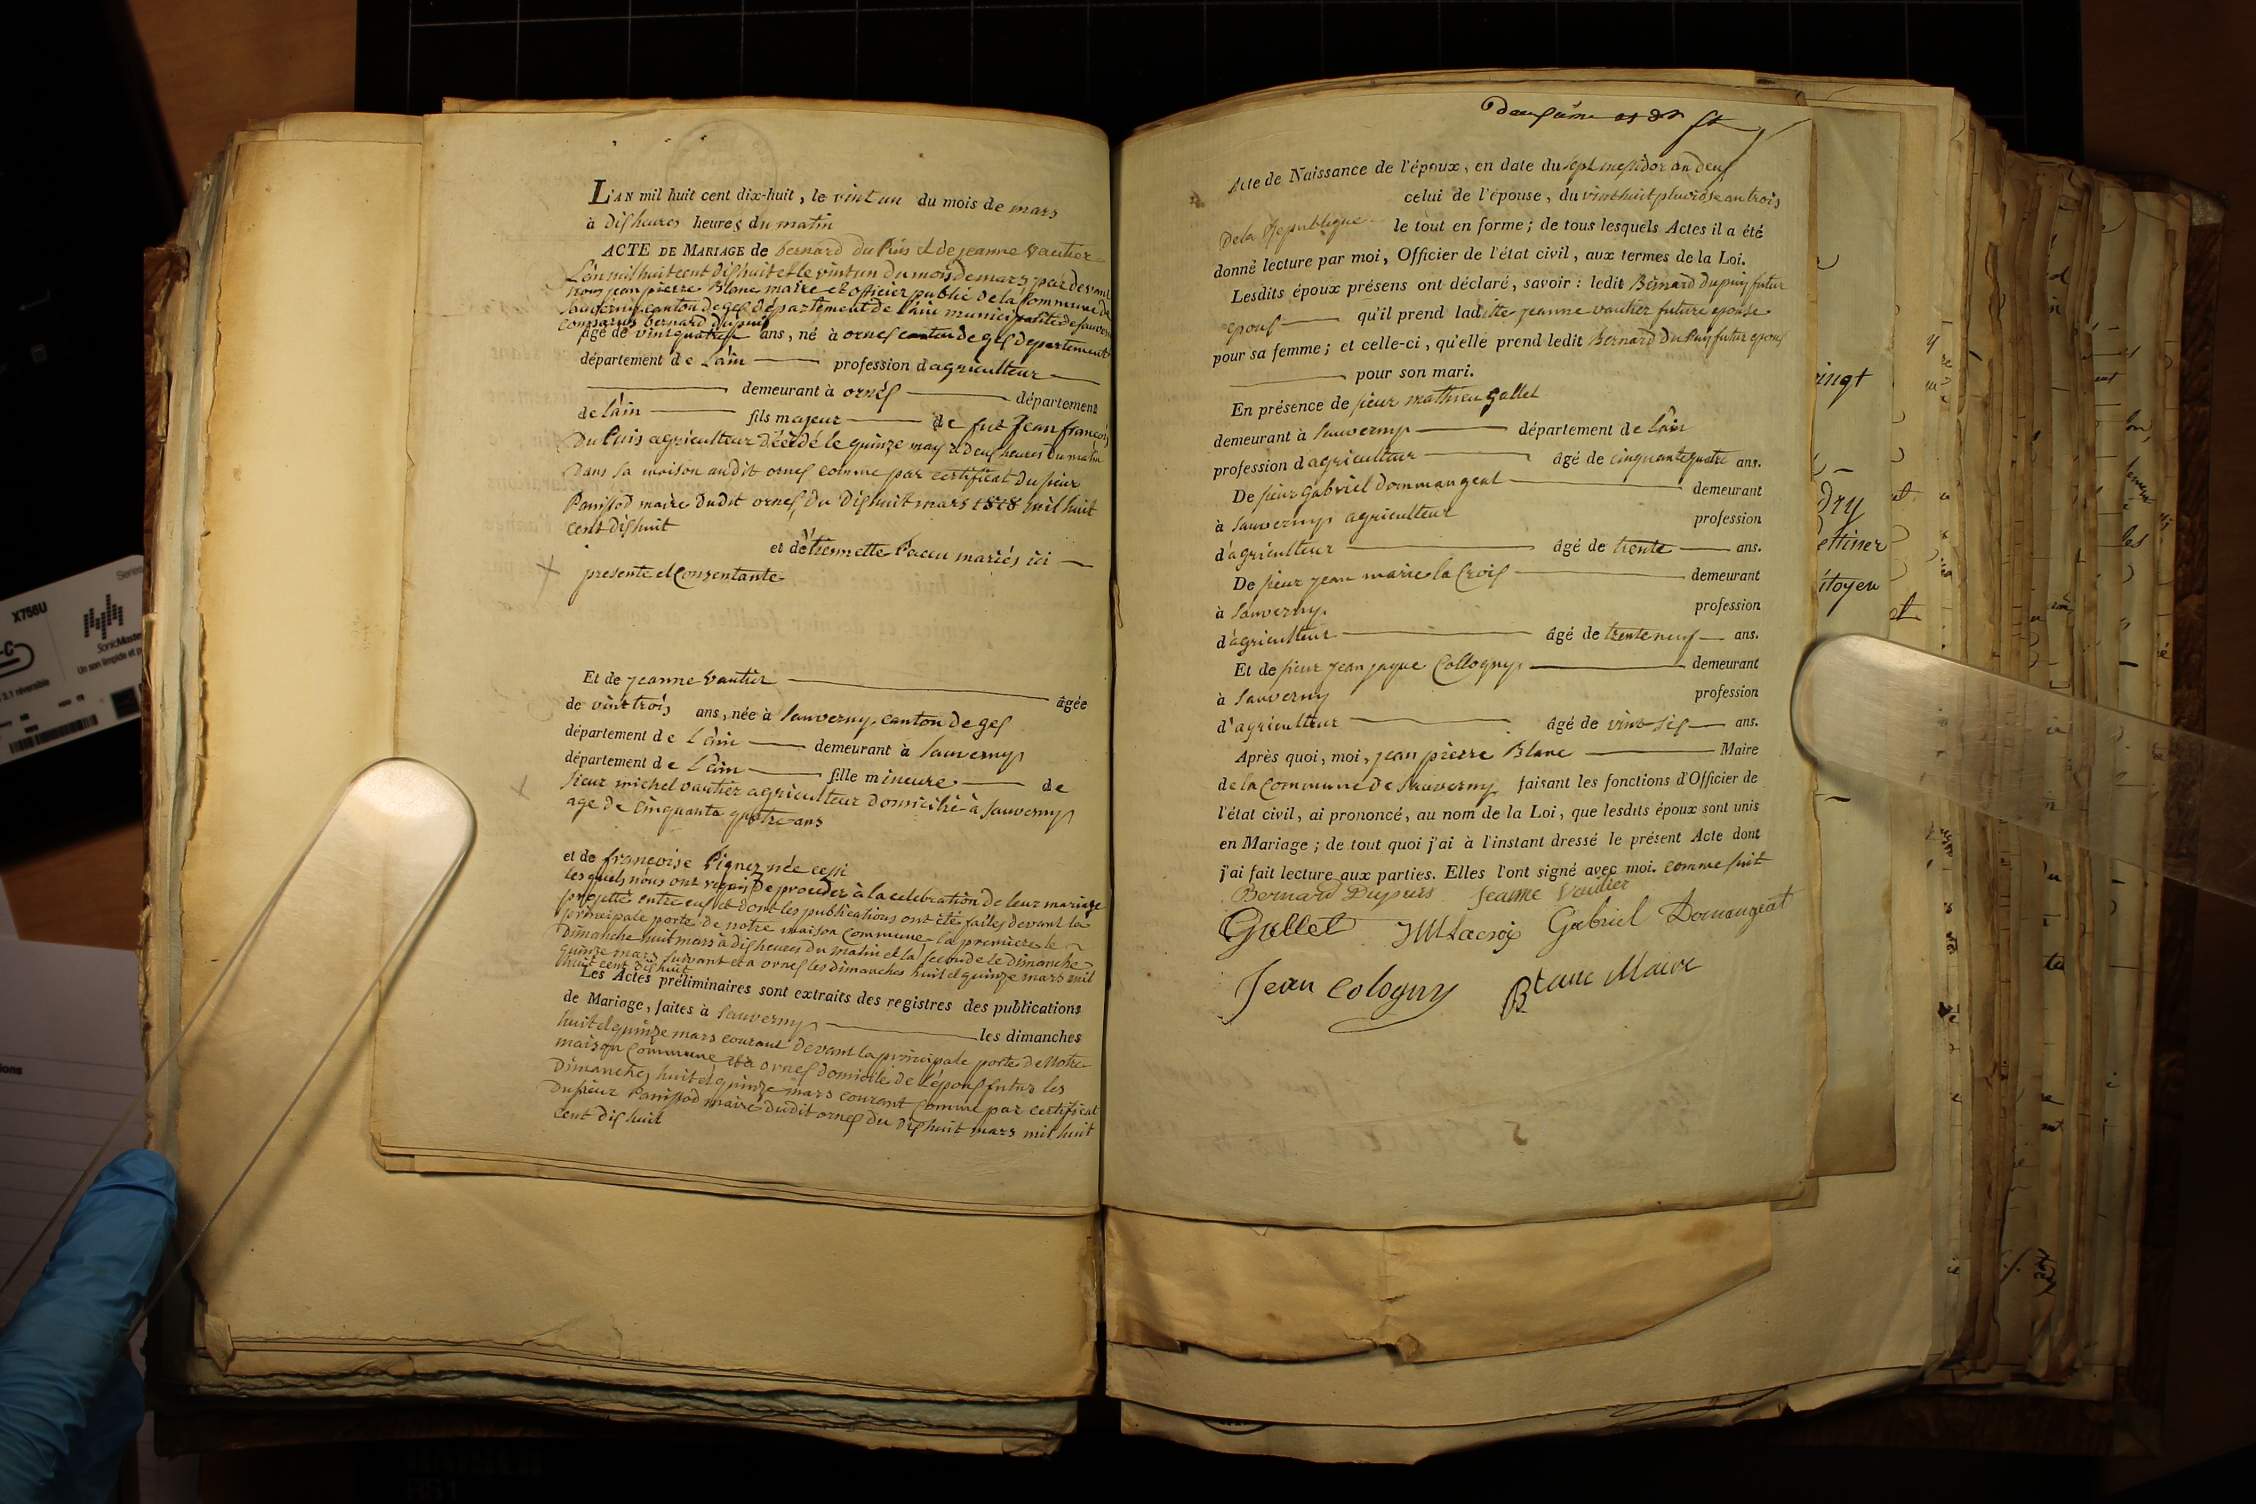 L'AN mil huit cent dix-huit, le vint un du mois de mars
à disheures heures du matin
ACTE DE MARIAGE de bernard du Puis et de jeanne vautier
L'an mil huit cent dishuit et le vint un du mois de mars par devant
nous jean pierre Blanc maire et officier public de la Commune de
Sauverny canton de gex département de l'ain municipalité de sauverny
comparus bernard dupuis
âgé de vint quatres ans, né à ornex canton de gex departement
département de L'ain profession d'agriculteur
demeurant à ornex département
de l'ain fils majeur de fut Jean françois
Du Puis agriculteur décédé le quinze may à deux heures du matin
dans sa maison audit ornex comme par certificat du sieur
Panissod maire dudit ornex, du dishuit mars 1818 mil huit
cent dishuit
et d'étiennette Pacou mariés ici
presente et Consentante
Et de jeanne vautier âgée
de vint trois ans, née à Sauverny, canton de gex
département de L'ain demeurant à Sauverny
département de L'ain fille mineure de
sieur michel vautier agriculteur domicilié à Sauverny
age de cinquante quatre ans
et de françoise Pignez née
lesquels nous ont requis De proceder à la celebration de leur mariage
projetté entre eux et dont les publications ont été faites devant la
principale porte de notre maison commune la premiere le
dimanche huit mars à dis heures du matin et la seconde le dimanche
quinze mars suivant et a ornex les dimanches huit et quinze mars mil
huit cent dishuit
Les Actes préliminaires sont extraits des registres des publications
de Mariage, faites à Sauverny les dimanches
huit et quinze mars courant devant la principale porte de Notre
maison Commune et a ornex domicile de l'epoux futur les
Dimanches huit et quinze mars courant Comme par certificat
Du sieur Panissod maire dudit ornex du dishuit mars mil huit
cent dis huit
Acte de Naissance de l'époux, en date du sept messidor an deux
celui de l'épouse, du vint huit pluviose an trois
De la Republique le tout en forme; de tous lesquels Actes il a été
donné lecture par moi, Officier de l'état civil, aux termes de la Loi.
Lesdits époux présens ont déclaré, savoir: ledit Bernard Dupuy futur
epoux qu'il prend laditte jeanne vautier future epouse
pour sa femme; et celle-ci, qu'elle prend ledit Bernard Du Puy futur epoux
pour son mari.
En présence de sieur mathieu Gallet
demeurant à Sauverny département de L'ain
profession d'agriculteur âgé de cinquante quatre ans.
De sieur Gabriel Dommangeat demeurant
à Sauverny agriculteur profession
d'agriculteur âgé de trente ans.
De sieur jean marie la Croix demeurant
à Sauverny profession
d'agriculteur âgé de trente neuf ans.
Et de sieur jean jaque Collogny demeurant
à Sauverny profession
d'agriculteur âgé de vint six ans.
Après quoi, moi, jean pierre Blanc Maire
de la Commune de Sauverny faisant les fonctions d'Officier de
l'état civil, ai prononcé, au nom de la Loi, que lesdits époux sont unis
en Mariage; de tout quoi j'ai à l'instant dressé le présent Acte dont
j'ai fait lecture aux parties. Elles l'ont signé avec moi. comme suit
Bernard Dupuis Jeanne Vautier
Gallet JM Lacroix Gabriel Domangeat
Jean Cologny Blanc Maire
ingt
dry
itoyen
X756U
SonicMaster
3.1 réversible